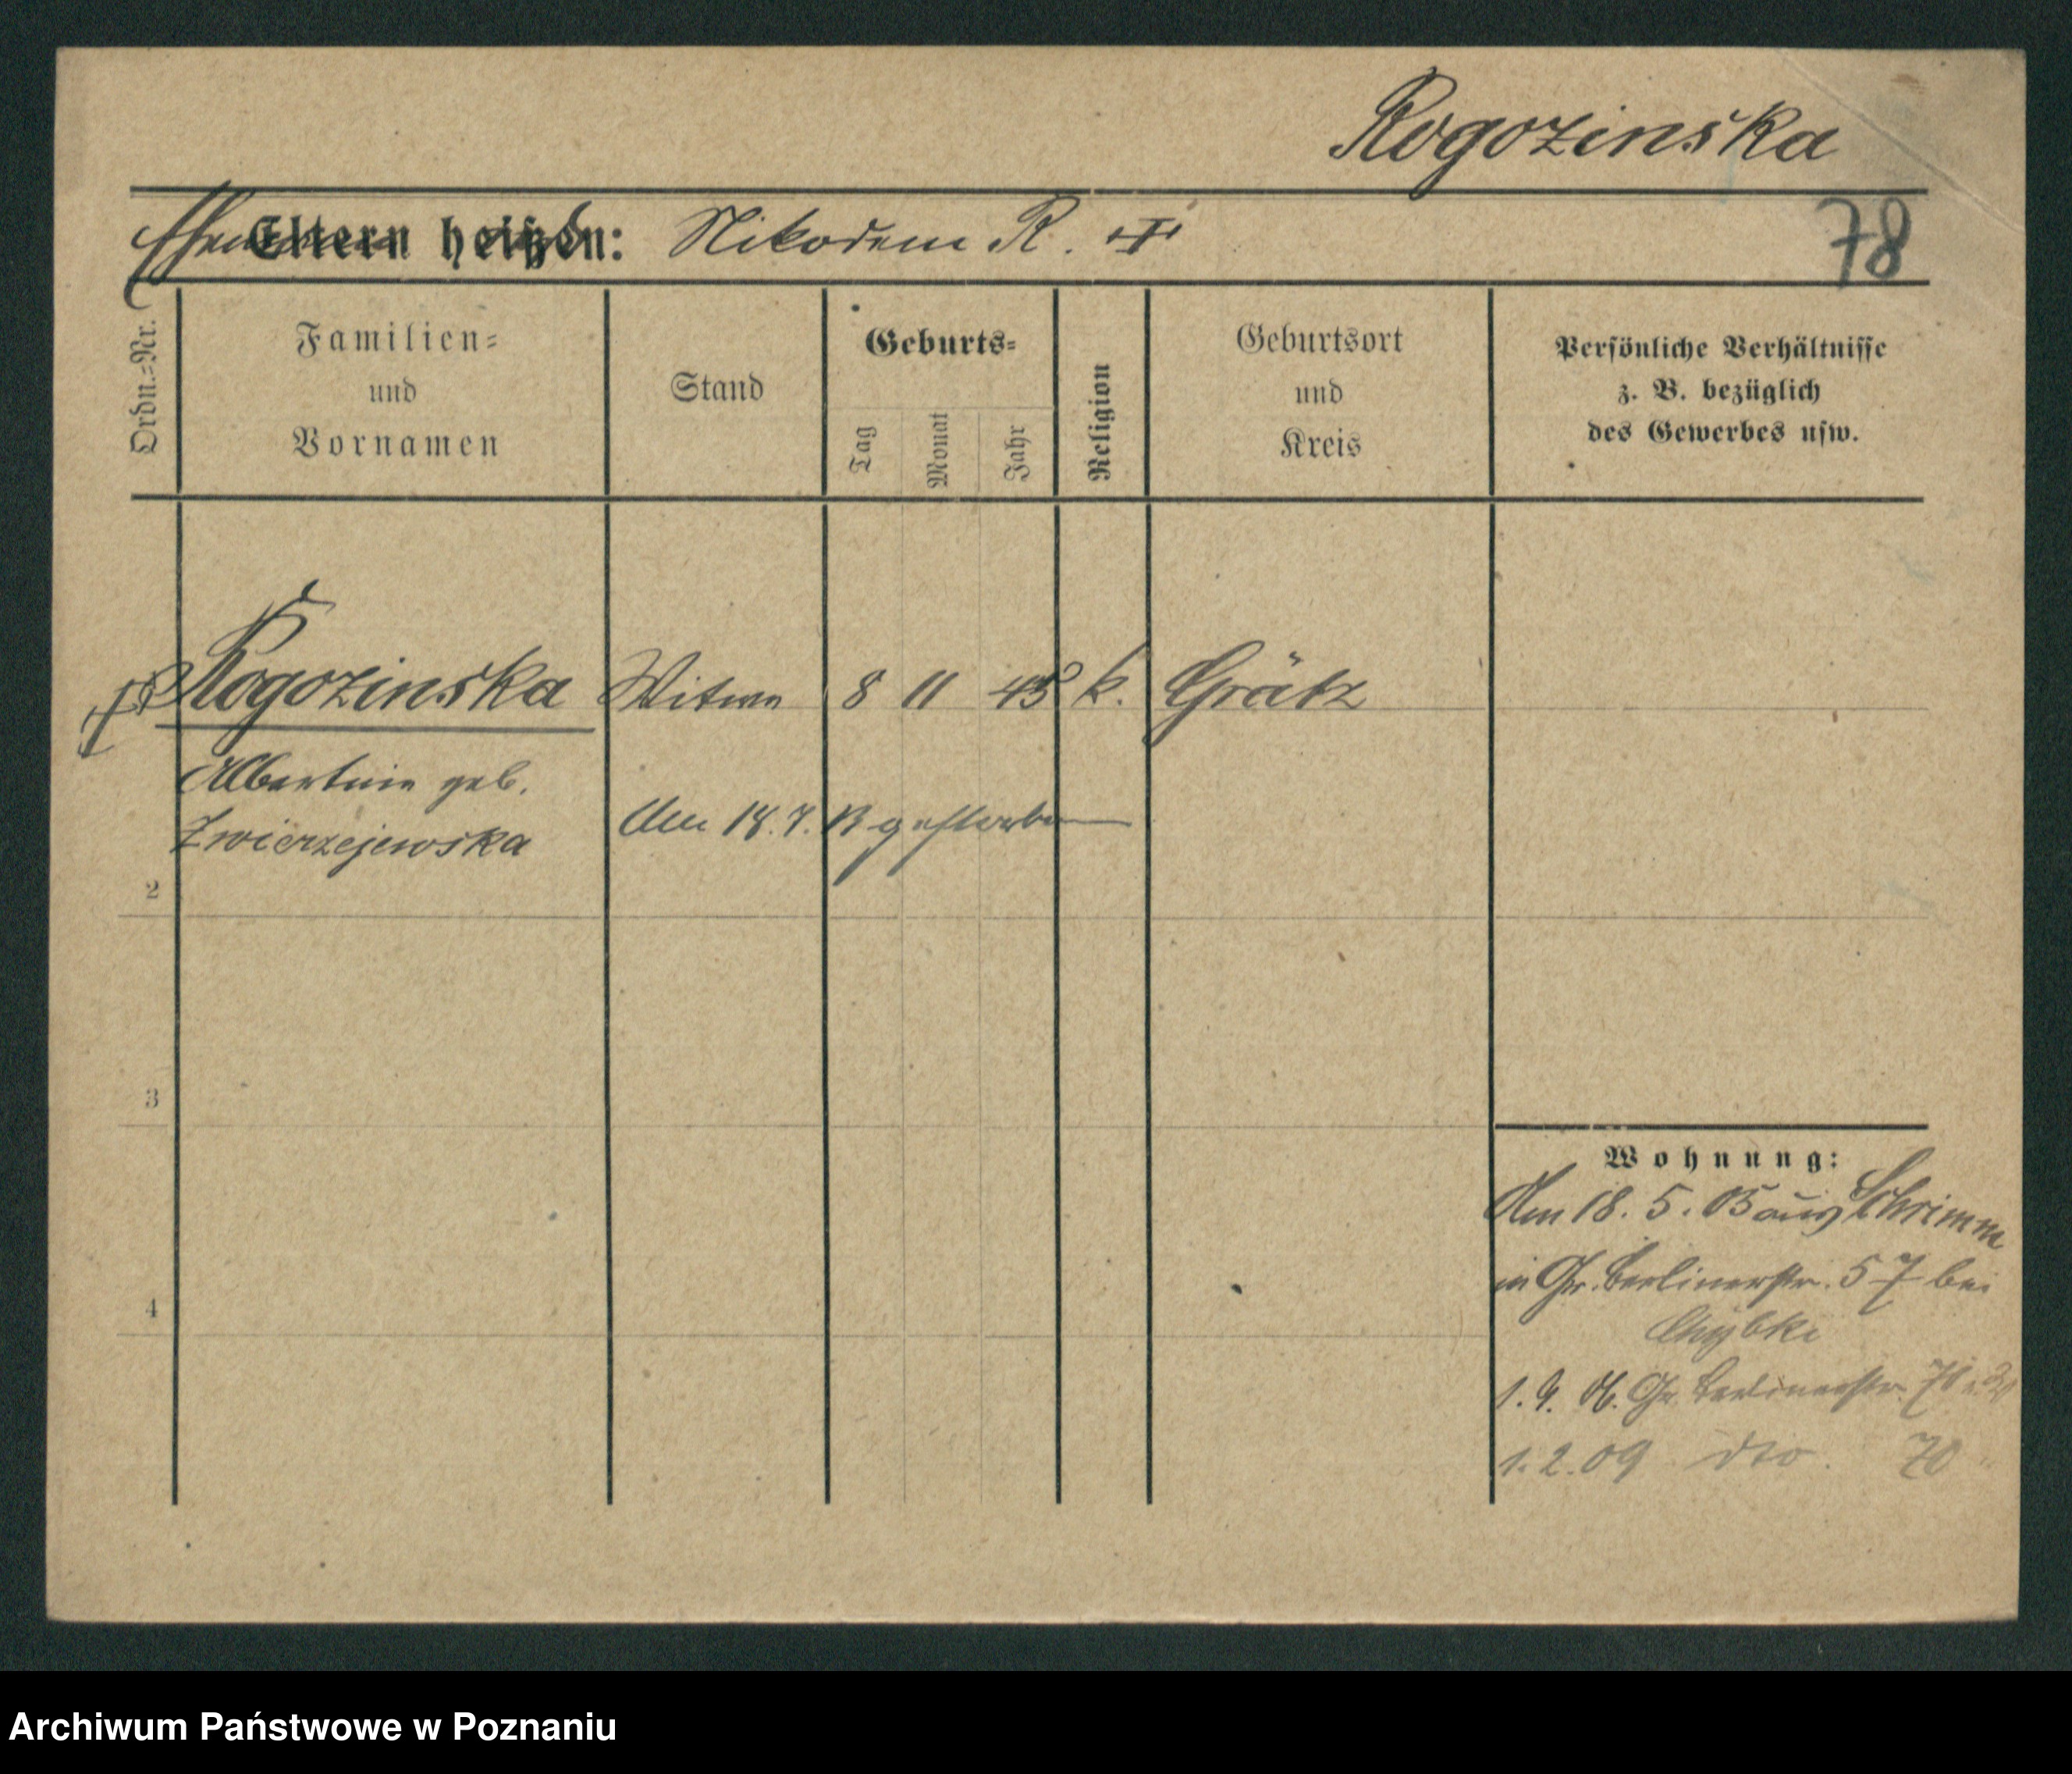 Rogozinska
Eltern heißen: Nikodem R.
78
Ordn.=Nr.
Familien=
und
Vornamen
Stand
Geburts=
Tag
Monat
Jahr
Religion
Geburtsort
und
Kreis
Persönliche Verhältnisse
z. B. bezüglich
des Gewerbes usw.
Rogozinska Witwe 8 11 45 k. Grätz
Albertine geb.
Zwierzejewska
Am 18.7. 13 gestorben
2
3
4
Wohnung:
Am 18. 5. 05 aus Schrimm
in Gr. Berlinerstr. 57 bei
Chybki
1. 9. 06. Gr. Berlinerstr.
1. 2. 09 dto. 70
Archiwum Państwowe w Poznaniu